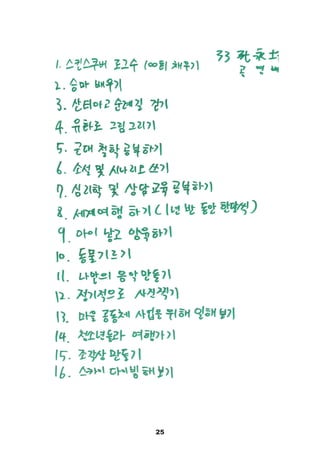 33
1. 스킨스쿠버 로그수 100회 채우기
2. 승마 배우기
3. 산티아고 순례길 걷기
4. 유화로 그림그리기
5. 근대 철학 공부하기
6. 소설 및 시나리오 쓰기
7. 심리학 및 상담 교육 공부하기
8. 세계여행 하기 (1년 반 동안 한달씩)
9. 아이 낳고 양육하기
10. 동물기르기
11. 나만의 음악 만들기
12. 정기적으로 사진찍기
13. 마을 공동체 사업을 위해 일해보기
14. 청소년들과 여행가기
15. 조각상 만들기
16. 스카이 다이빙 해보기
25